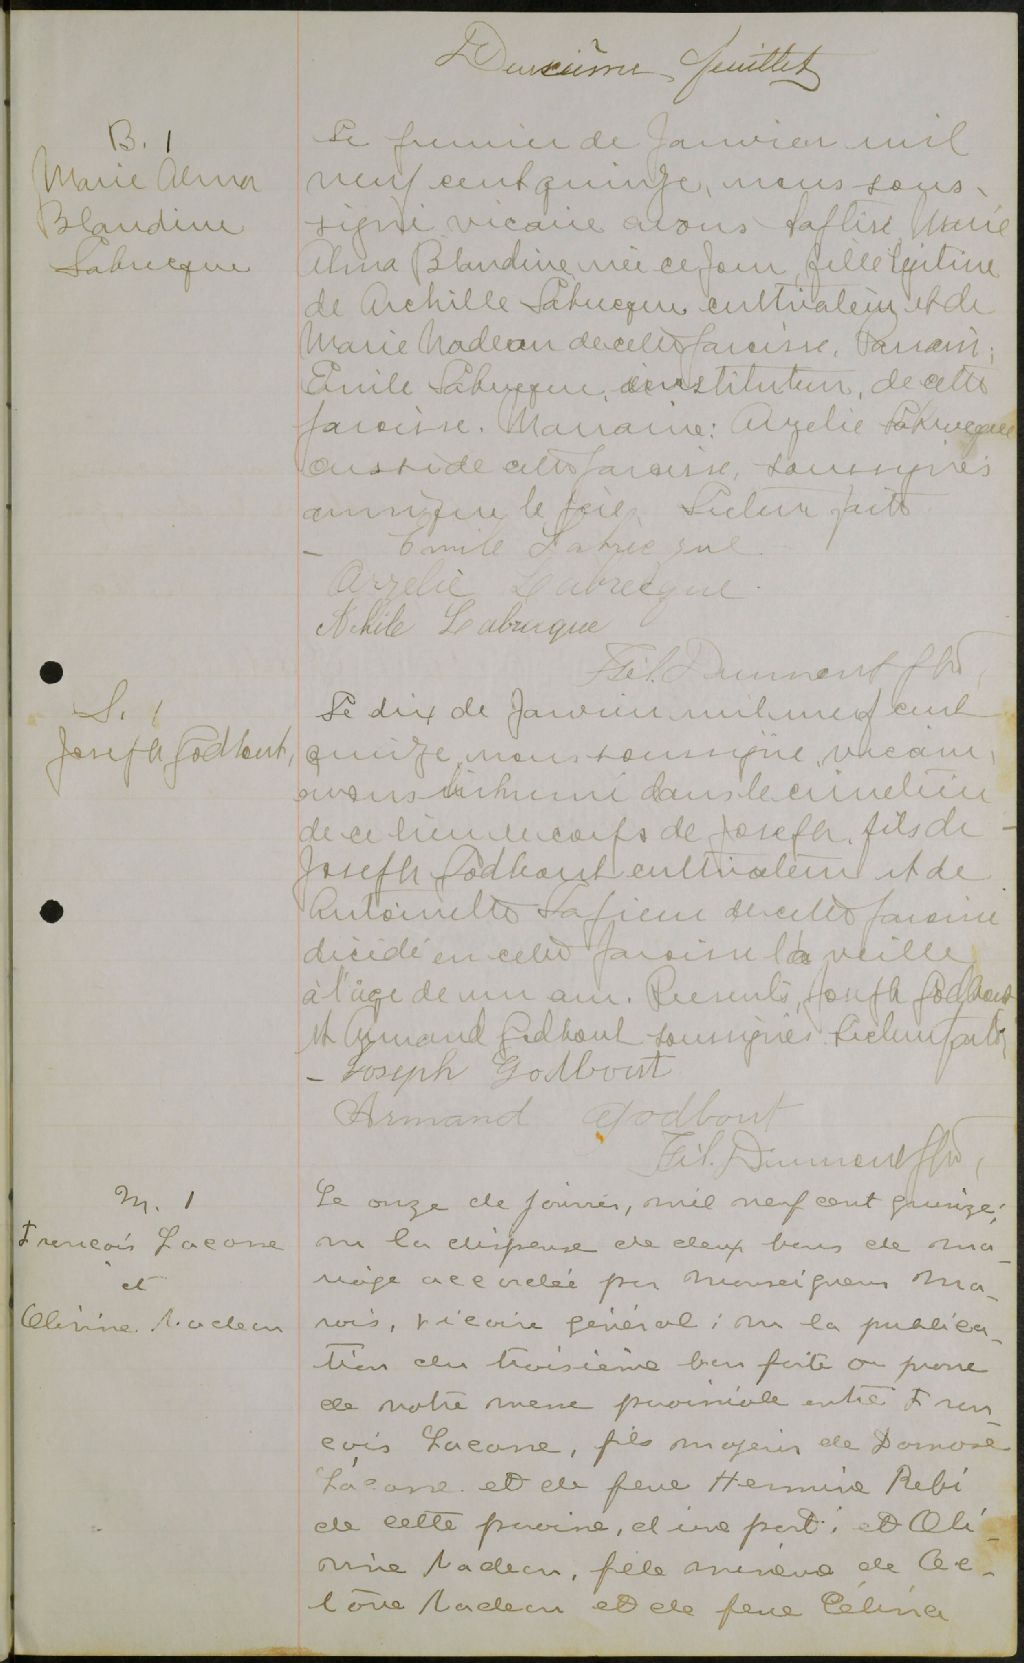 Deuxième feuillet
B. 1
Marie Alma
Blandine
Labrecque
Le premier de Janvier mil
neuf cent quinze, nous sous-
signé vicaire avons baptisé Marie
Alma Blandine née ce jour, fille légitime
de Archille Labrecque cultivateur et de
Marie Nadeau de cette paroisse. Parrain:
Emile Labrecque, instituteur, de cette
paroisse. Marraine: Arzelie Labrecque
aussi de cette paroisse, soussignés
le père. Lecture faite
- Emile Labrecque
Arzelie Labrecque
Achile Labrecque
Fél. Dumont ptre,
S. 1
Joseph Godbout,
Le dix de Janvier mil neuf cent
quinze, nous soussigné, vicaire,
avons inhumé dans le cimetière
de ce lieu le corps de Joseph, fils de
Joseph Godbout cultivateur et de
Antoinette de cette paroisse
décédé en cette paroisse la veille
à l'âge de un an. Présents, Joseph Godbout
et Armand Godbout soussignés. Lecture faite
- Joseph Godbout
Armand Godbout
Fél. Dumont ptre,
M. 1
François Lacasse
et
Olivine Nadeau
Le onze de janvier, mil neuf cent quinze;
vu la dispense de deux bans de ma-
riage accordée par Monseigneur Ma-
rois, vicaire général; vu la publica-
tion du troisième ban faite au prone
de notre messe paroissiale entre Fran-
çois Lacasse, fils majeur de Damase
Lacasse et de feue Hermine
de cette paroisse, d'une part; et Oli-
vine Nadeau, fille mineure de
Nadeau et de feue Célina